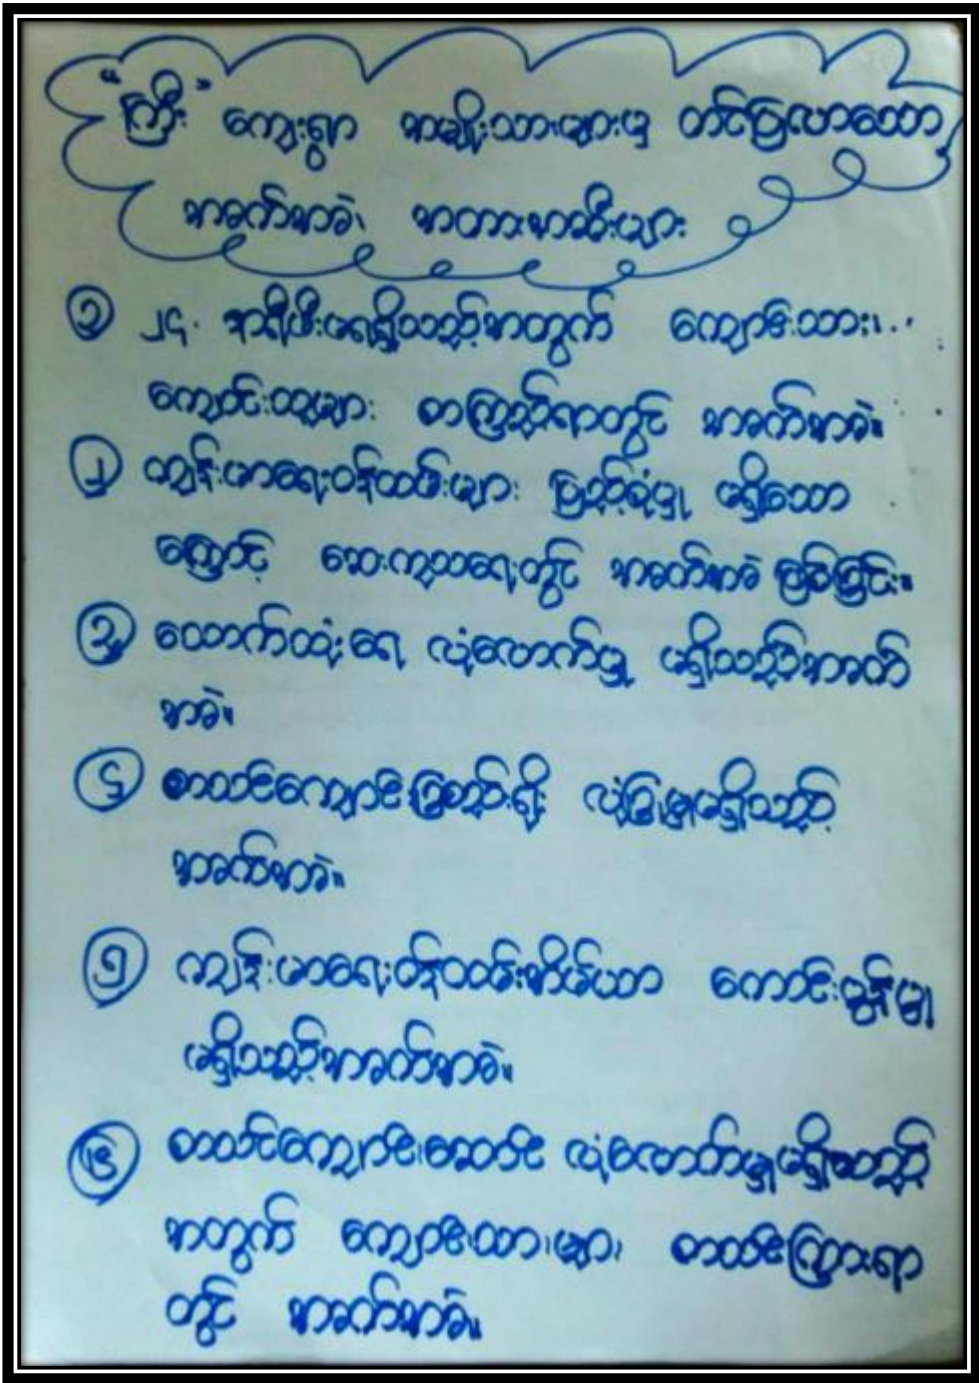 "ကြီး" ကျေးရွာ အမျိုးသားများမှ တင်ပြလာသော
အခက်အခဲ၊ အတားအဆီးများ
၁ ၂၄. နာရီမီးမရရှိသည့်အတွက် ကျောင်းသား၊..
ကျောင်းသူများ စာကြည့်ရာတွင် အခက်အခဲ။
၂ ကျန်းမာရေးဝန်ထမ်းများ ပြည့်စုံမှု မရှိသော
ကြောင့် ဆေးကုသရေးတွင် အခက်အခဲ ဖြစ်ခြင်း။
၃ သောက်သုံးရေ လုံလောက်မှု မရှိသည့်အခက်
အခဲ။
၄ စာသင်ကျောင်းခြံစည်းရိုး လုံခြုံမှုမရှိသည့်
အခက်အခဲ။
၅ ကျန်းမာရေးဝန်ထမ်းအိမ်ယာ ကောင်းမွန်မှု
မရှိသည့်အခက်အခဲ။
၆ စာသင်ကျောင်းဆောင် လုံလောက်မှုမရှိသည့်
အတွက် ကျောင်းသားများ စာသင်ကြားရာ
တွင် အခက်အခဲ။